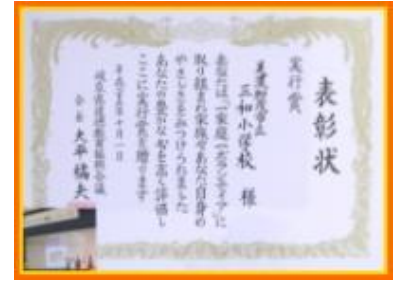 表彰状
実行賞
美濃加茂市立
三和小学校 様
あなたは、「家庭ボランティア」に
取り組まれ家族やあなた自身の
やさしさをみつけられました
あなたの豊かな心を高く評価し
ここに実行賞を贈ります
十月一日
会長 大平橘夫